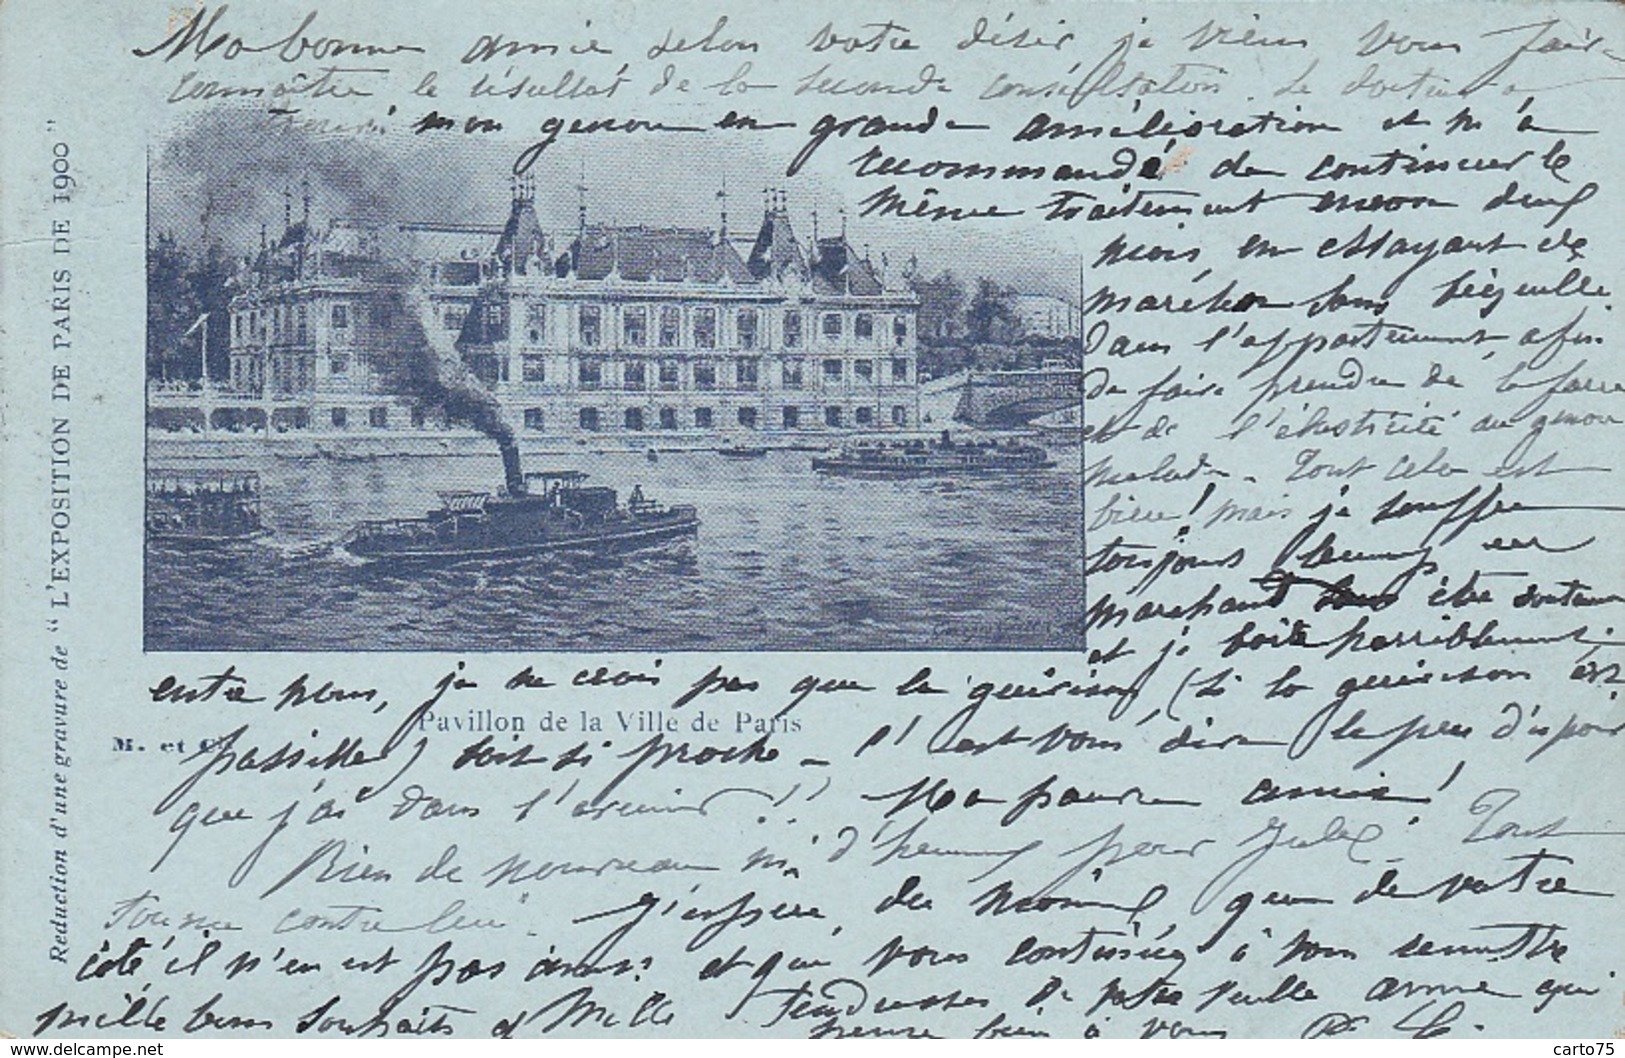 Ma bonne amie selon votre désir je viens vous faire
connaître le résultat de la seconde consultation. Le docteur a
trouvé mon genou en grande amélioration et m'a
recommandé de continuer le
même traitement encore deux
mois en essayant de
marcher sans béquille
dans l'appartement, afin
de faire prendre de la force
et de l'élasticité au genou
malade. Tout cela est
bien! mais je souffre
toujours en
marchant être soutenue
et je boite horriblement.
entre nous, je ne crois pas que la guérison (si la guérison est
possible) soit si proche - C'est vous dire le peu d'espoir
que j'ai dans l'avenir!! Ma pauvre amie!
Rien de nouveau ni d'heureux pour Jules. Tout
tourne contre lui. J'espère du moins que de votre
côté il n'en est pas ainsi et que vous continuez à vous remettre
mille bons souhaits d'Mille tendresses de votre vieille amie qui
pense bien à vous
Reduction d'une gravure de "L'EXPOSITION DE PARIS DE 1900"
Pavillon de la Ville de Paris
M. et C
carto75